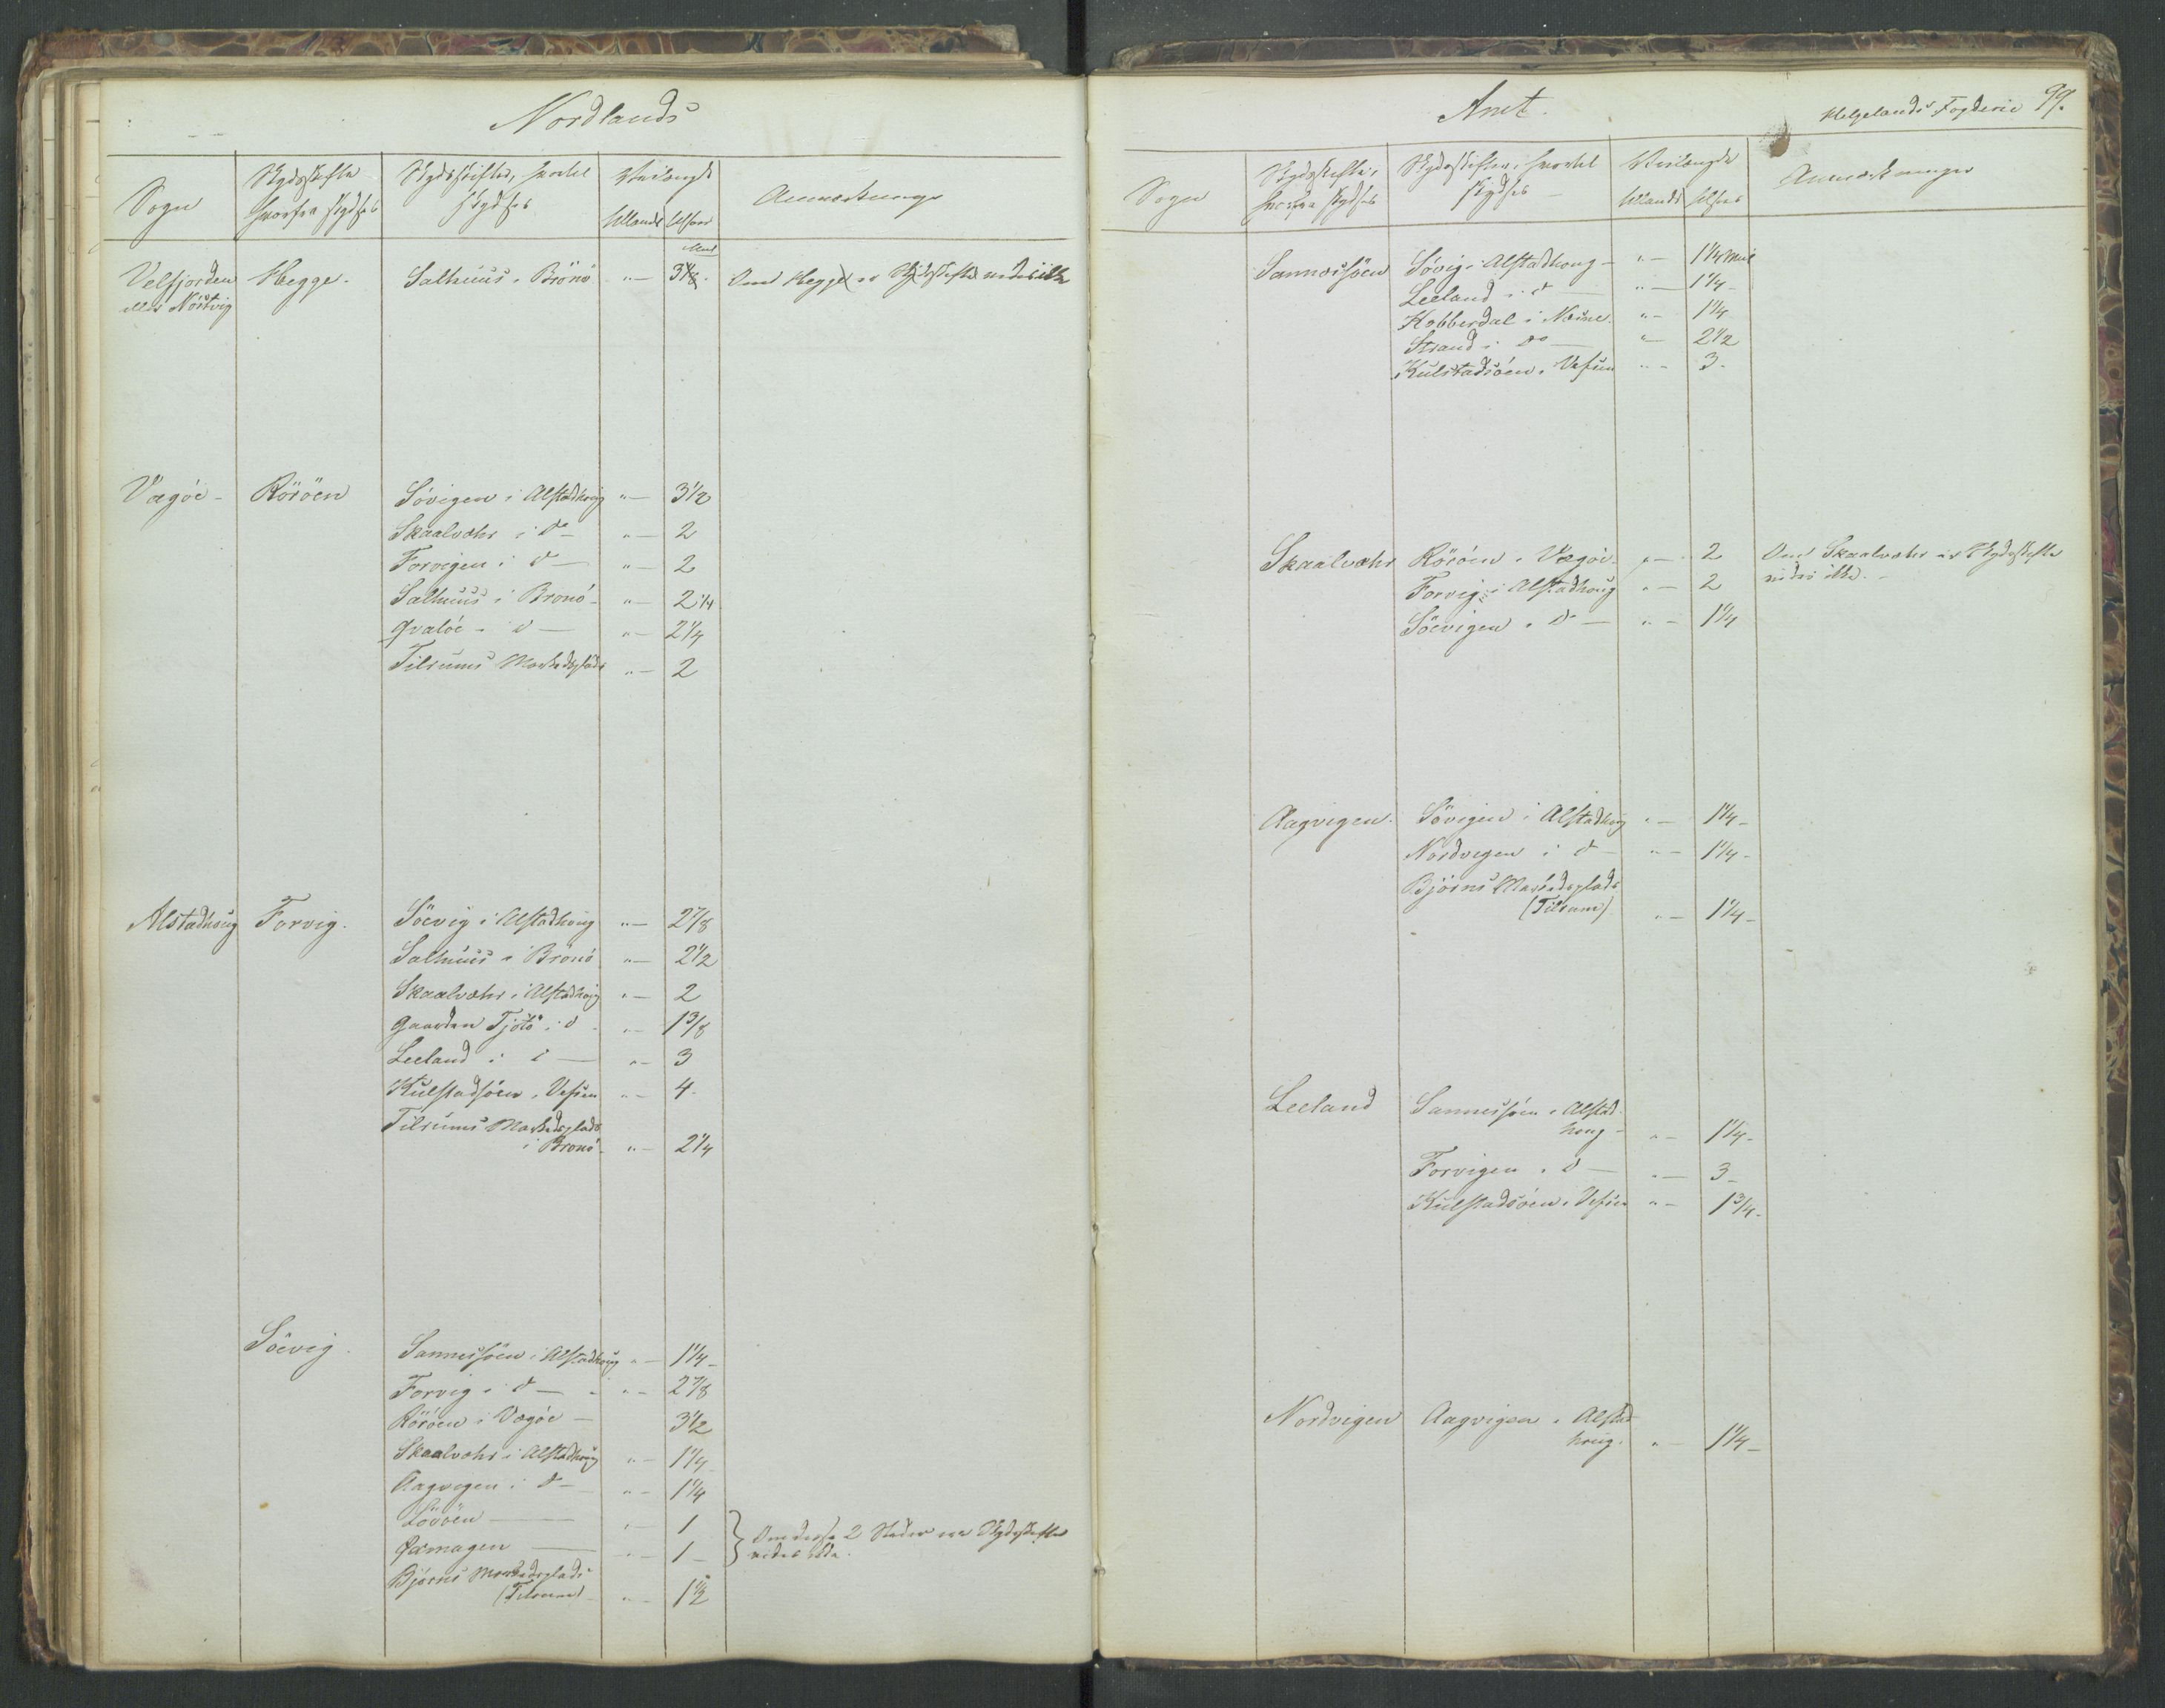 Nordlands
Sogn | Skydsskifte hvorfra skydses | Skydsskifter, hvortil skydses | Veilængde Tillands Tilsøes | Anmærkninger
Velfjorden | Hegge. | Salhuus i Brönö | "— | 3 1/8. Miil | Om Hegge er Skydsskifte vides ikke
eller Nöstvig
Vægöe - | Röröen | Sövigen i Alstadhoug | "— | 3 1/2
Skaalvæhr i do | "— | 2
Forvigen i do | "— | 2
Salhuus i Brönö | "— | 2 1/4
Qvalöe i do | "— | 2 1/4
Tilrums Markedsplads | "— | 2
Alstadhoug | Forvig. | Söevig i Alstadhoug | "— | 2 7/8
Salhuus i Brönö | "— | 2 1/2
Skaalvæhr i Alstadhoug | "— | 2
Gaarden Tjötö i do | "— | 1 3/8
Leeland i do | "— | 3
Kulstadsöen i Vefsen | "— | 4.
Tilrums Markedsplads
i Brönö | "— | 2 1/4
Söevig. | Sannessöen i Alstadhoug | "— | 1 1/4
Forvig i do | "— | 2 7/8
Röröen i Vægöe — | 3 1/2
Skaalvæhr i Alstadhoug | "— | 1 1/4
Aagvigen i do | "— | 1 1/4
Lövöen — | "— | 1 | } Om disse 2 Steder ere Skydsskifter
— | "— | 1 | vides ikke.
Björns Markedsplads
(Tilrum) | "— | 1 1/2
Amt.
Helgelands Fogderie 99.
Sogn | Skydsskifte, hvorfra skydses | Skydsskifter, hvortil skydses | Veilængde Tillands Tilsøes | Anmærkninger
Sannessöen | Sövig i Alstadhoug | "— | 1 1/4 Miil
Leeland i do | "— | 1 1/4
Kobberdal i Næsne. | "— | 1 1/4
Strand i do | "— | 2 1/2
Kulstadsöen i Vefsen | "— | 3.
Skaalvæhr | Röröen i Vægöe | "— | 2 | Om Skaalvæhr er Skydsskifte
Forvig i Alstadhoug | "— | 2 | vides ikke. —
Söevigen i do | "— | 1 1/4
Aagvigen. | Sövigen i Alstadhoug | "— | 1 1/4
Nordvigen i do | "— | 1 1/4
Björns Markedsplads
(Tilrum) | "— | 1 1/4
Leeland | Sannessöen i Alstad-
houg | "— | 1 1/4
Forvigen i do | "— | 3
Kulstadsöen i Vefsen | "— | 1 3/4
Nordvigen | Aagvigen i Alstad-
houg. | "— | 1 1/4